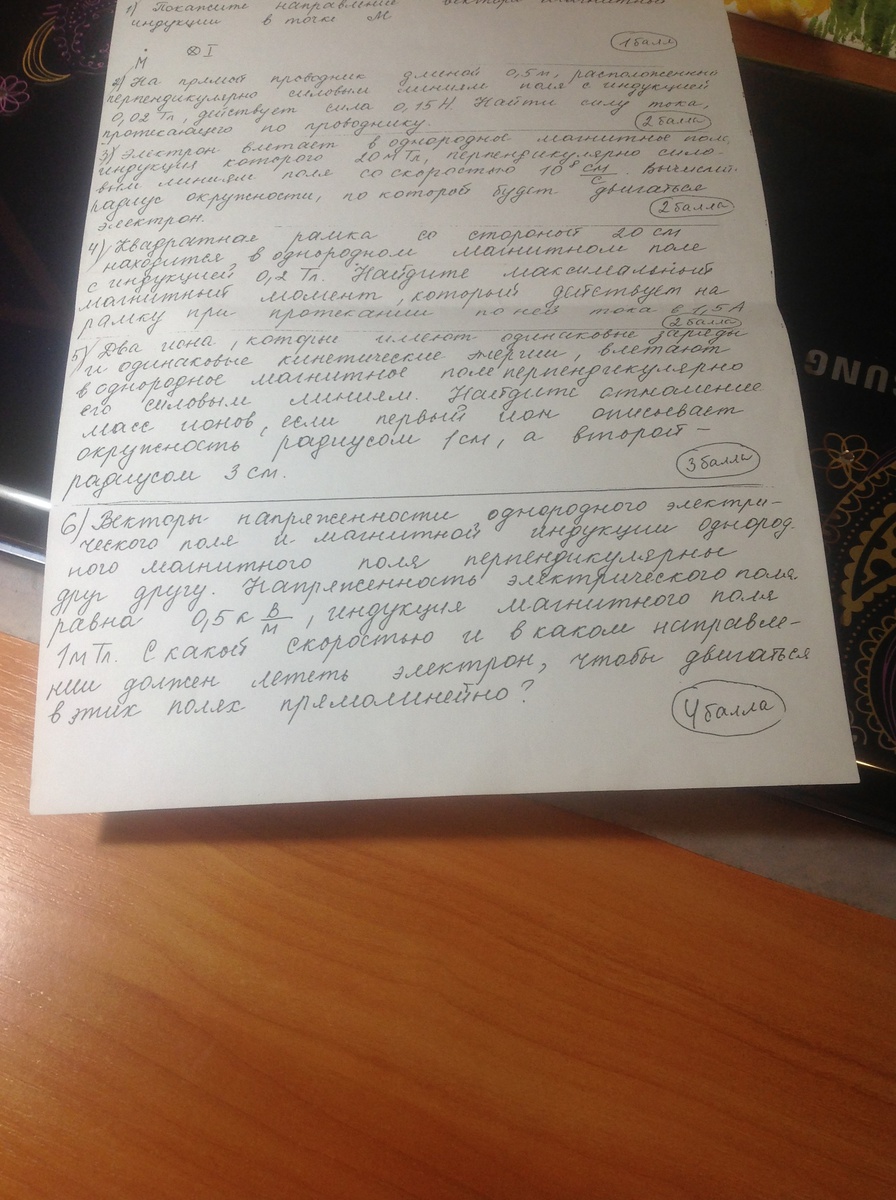 1) Покажите направление вектора магнитной
индукции в точке М
М ⊗ I
1 балл
2) На прямой проводник длиной 0,5 м, расположенный
перпендикулярно силовым линиям поля с индукцией
0,02 Тл, действует сила 0,15 Н. Найти силу тока,
протекающего по проводнику.
2 балла
3) Электрон влетает в однородное магнитное поле,
индукция которого 20 мТл, перпендикулярно сило-
вым линиям поля со скоростью 10⁸ см/с. Вычислит.
радиус окружности, по которой будет двигаться
электрон.
2 балла
4) Квадратная рамка со стороной 20 см
находится в однородном магнитном поле
с индукцией 0,2 Тл. Найдите максимальный
магнитный момент, который действует на
рамку при протекании по ней тока в 1,5 А
2 балла
5) Два иона, которые имеют одинаковые заряды
и одинаковые кинетические энергии, влетают
в однородное магнитное поле перпендикулярно
его силовым линиям. Найдите отношение
масс ионов, если первый ион описывает
окружность радиусом 1 см, а второй –
радиусом 3 см.
3 балла
6) Векторы напряженности однородного электри-
ческого поля и магнитной индукции однород.
ного магнитного поля перпендикулярны
друг другу. Напряженность электрического поля
равна 0,5 к В/м, индукция магнитного поля
1 мТл. С какой скоростью и в каком направле-
нии должен лететь электрон, чтобы двигаться
в этих полях прямолинейно?
4 балла
SUNG